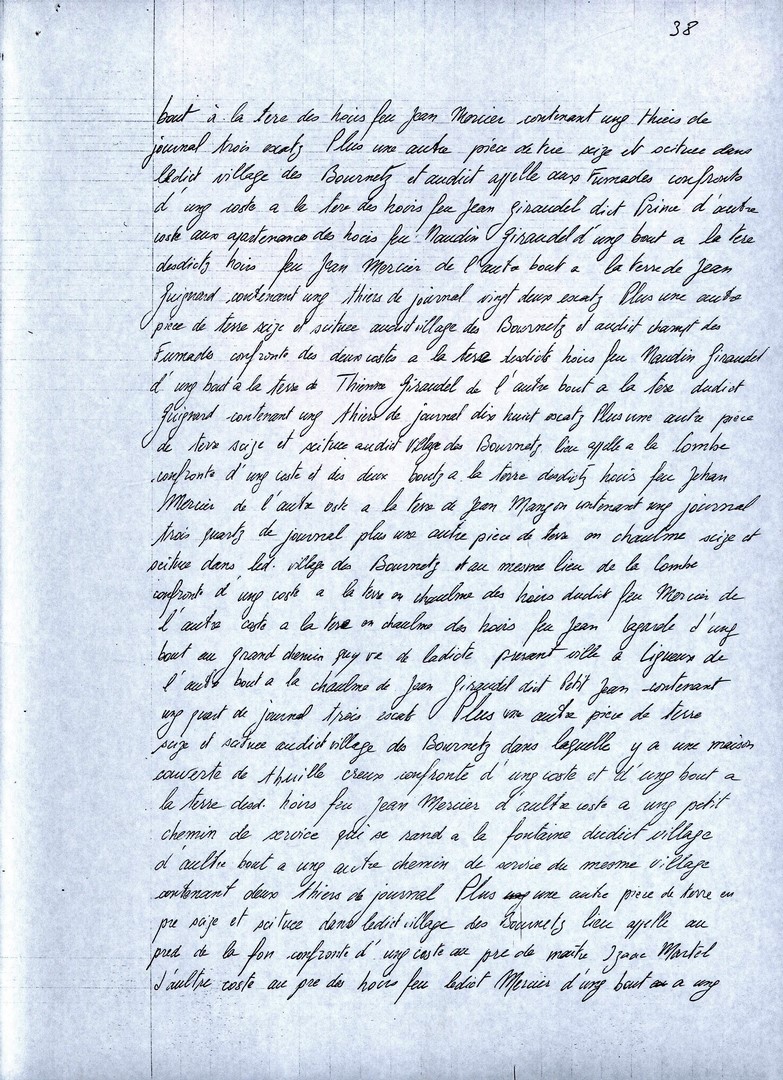 38
bout à la tere des hoirs feu Jean Mercier contenant ung thiers de
journal trois escatz Plus une autre pièce de tere seize et scituee dans
ledict village des Bournetz et audict appelle aux Fumades confronte
d'ung coste a la tere des hoirs feu Jean Giraudel dict Prince d'autre
coste aux apartenances des hoirs feu Naudin Giraudel d'ung bout a la tere
desdictz hoirs feu Jean Mercier de l'autre bout a la terre de Jean
Guignard contenant ung thiers de journal vingt deux escatz Plus une autre
piece de terre seize et scituee audict village des Bournetz et audict champt des
Fumades confronte des deux costes a la tere desdicts hoirs feu Naudin Giraudel
d'ung bout a la terre de Thienne Giraudel de l'autre bout a la tere dudict
Guignard contenant ung thiers de journal dix huict escatz Plus une autre piece
de terre seize et scituee audict village des Bournetz lieu appelle a la Combe
confronte d'ung coste et des deux boutz a la terre desdictz hoirs feu Johan
Mercier de l'autre coste a la terre de Jean Mangon contenant ung journal
trois quartz de journal plus une autre piece de terre en chaulme seize et
scituee dans led. village des Bournetz et au mesme lieu de la Combe
confronte d'ung coste a la terre en chaulme des hoirs dudict feu Mercier de
l'autre coste a la tere en chaulme des hoirs feu Jean Lagarde d'ung
bout au grand chemin quy va de ladicte present ville a Ligueux de
l'autre bout a la chaulme de Jean Giraudel dict Petit Jean contenant
ung quart de journal trois escats Plus une autre piece de terre
seize et scituee audict village des Bournetz dans laquelle y a une maison
couverte de thuille creux confronte d'ung coste et d'ung bout a
la terre desd. hoirs feu Jean Mercier d'aultre coste a ung petit
chemin de service qui se rand a la fontaine dudict village
d'aultre bout a ung autre chemin de service du mesme village
contenant deux thiers de journal Plus ung une autre piece de terre en
pre seize et scituee dans ledict village des Bournetz lieu appelle au
pred de la fon confronte d'ung coste au pre de maitre Izaac Martel
d'aultre coste au pre des hoirs feu ledict Mercier d'ung bout a ung